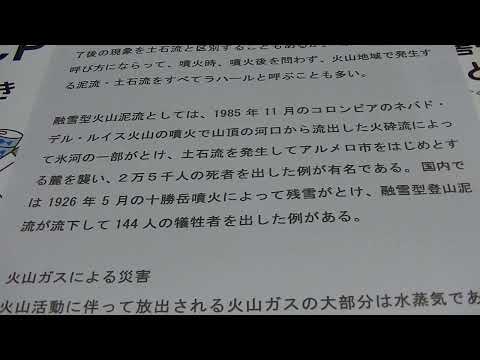 了後の現象を土石流と区別することもあるが
呼び方にならって、噴火時、噴火後を問わず、火山地域で発生す
る泥流・土石流をすべてラハールと呼ぶことも多い。
融雪型火山泥流としては、1985 年 11 月のコロンビアのネバド・
デル・ルイス火山の噴火で山頂の河口から流出した火砕流によっ
て氷河の一部がとけ、土石流を発生してアルメロ市をはじめとす
る麓を襲い、2万5千人の死者を出した例が有名である。国内で
は 1926 年 5 月の十勝岳噴火によって残雪がとけ、融雪型登山泥
流が流下して 144 人の犠牲者を出した例がある。
火山ガスによる災害
火山活動に伴って放出される火山ガスの大部分は水蒸気であ